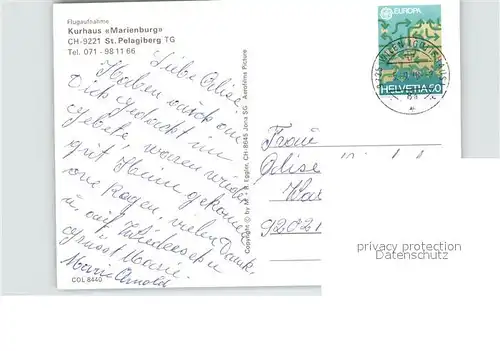 Flugaufnahme
Kurhaus «Marienburg»
CH-9221 St. Pelagiberg TG
Tel. 071 - 98 11 66
Liebe Alise!
Haben auch an
Dich gedacht im
Gebete, waren wieder
gut Heim gekomen
one Regen, vielen Dank,
u. auf Wiedersehn
grüsst Marie.
Marie Arnold
COL 8440
Copyright © by M. + R. Eggler, CH-8645 Jona SG Aerofilms Picture
EUROPA
HELVETIA 50
Frau
Alise
9202
privacy protection
Datenschutz